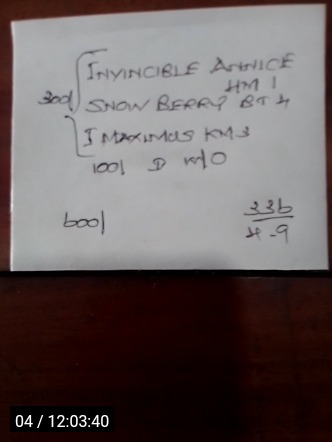 INVINCIBLE ANNICE
HM 1
300/ SNOW BERRY BT 4
I MAXIMUS KM 3
100/ D W/O
600/
336
4-9
04 / 12:03:40